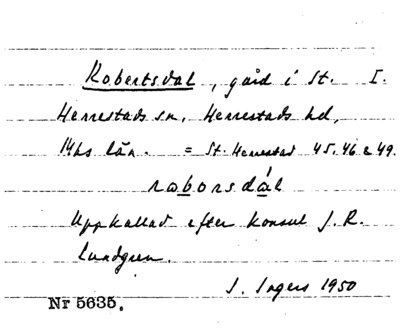 Robertsdal, gård i St. I.
Herrestads sn, Herrestads hd,
Mhs län. = St. Herrestad 45.46 & 49.
raborsdál
Uppkallad efter konsul J. R.
Lundgren.
J. Ingers 1950
Nr 5635.